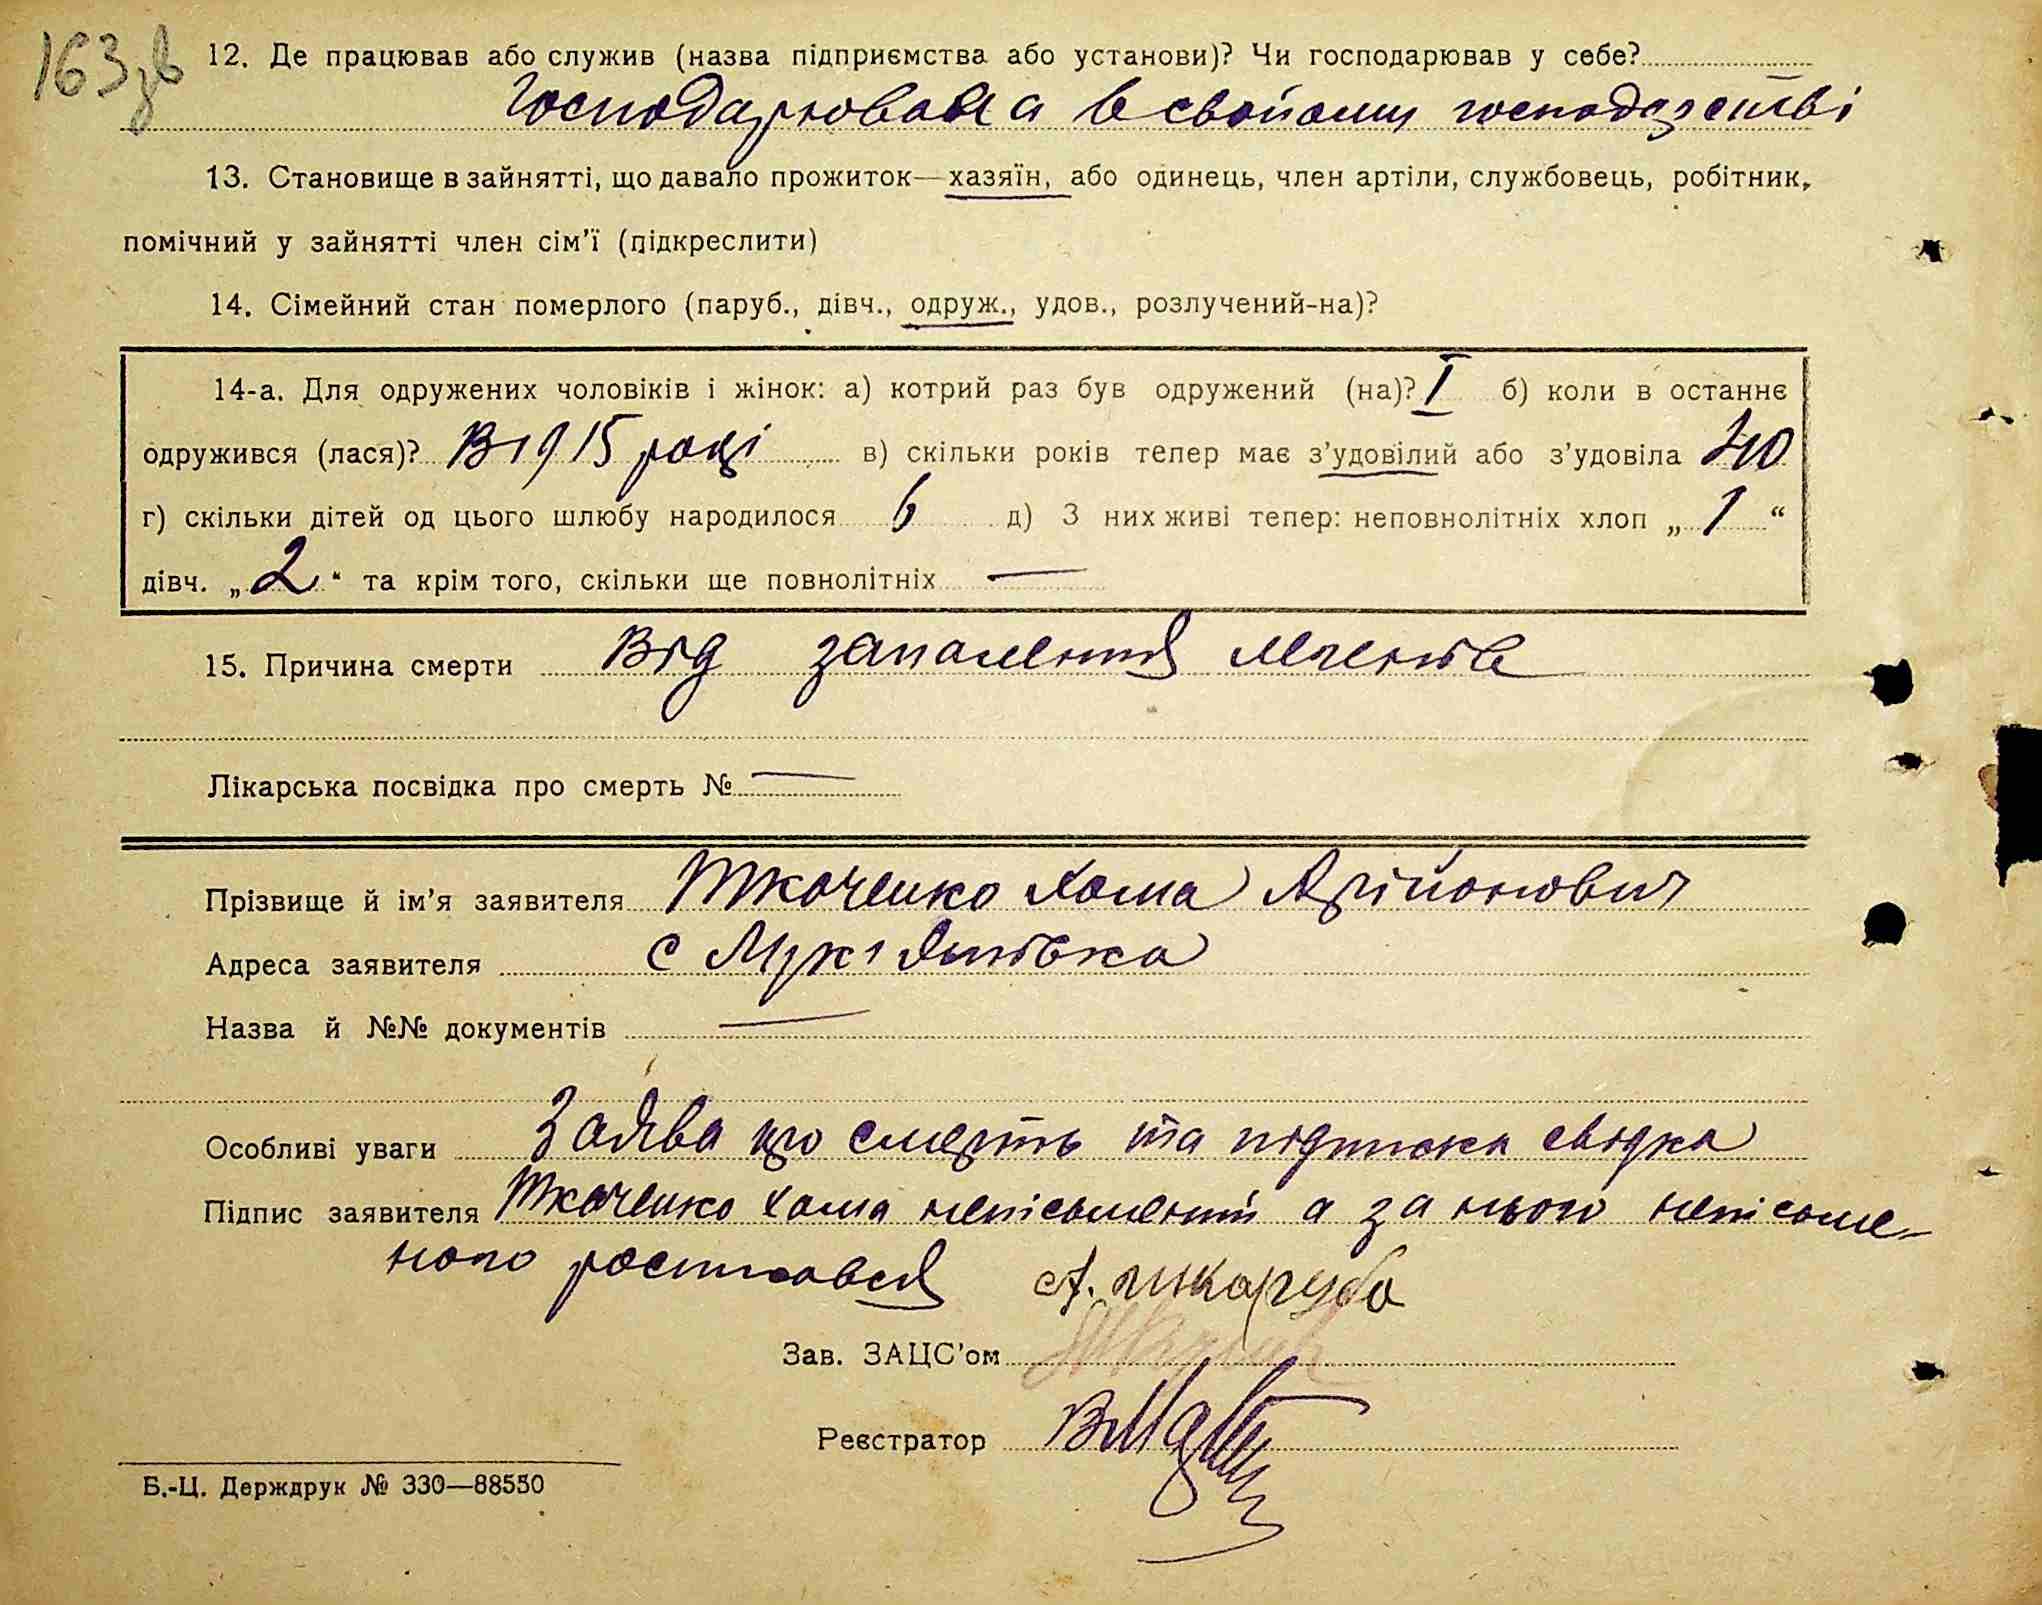 163 зв
12. Де працював або служив (назва підприємства або установи)? Чи господарював у себе?
Господарювала в свойому господарстві
13. Становище в зайнятті, що давало прожиток—хазяїн, або одинець, член артіли, службовець, робітник,
помічний у зайнятті член сім'ї (підкреслити)
14. Сімейний стан померлого (паруб., дівч., одруж., удов., розлучений-на)?
14-а. Для одружених чоловіків і жінок: а) котрий раз був одружений (на)? I б) коли в останнє
одружився (лася)? В 1915 році в) скільки років тепер має з'удовілий або з'удовіла 40
г) скільки дітей од цього шлюбу народилося 6 д) З них живі тепер: неповнолітніх хлоп „ 1 “
дівч. „ 2 “ та крім того, скільки ще повнолітніх —
15. Причина смерти Від запалення легенів
Лікарська посвідка про смерть № —
Прізвище й ім'я заявителя Ткаченко Хома
Адреса заявителя с
Назва й №№ документів —
Особливі уваги Заява про смерть та підписка свідка
Підпис заявителя Ткаченко Хома неписьменний а за нього неписьме-
ного росписався А. Шкаруба
Зав. ЗАЦС'ом
Реєстратор
Б.-Ц. Держдрук № 330—88550